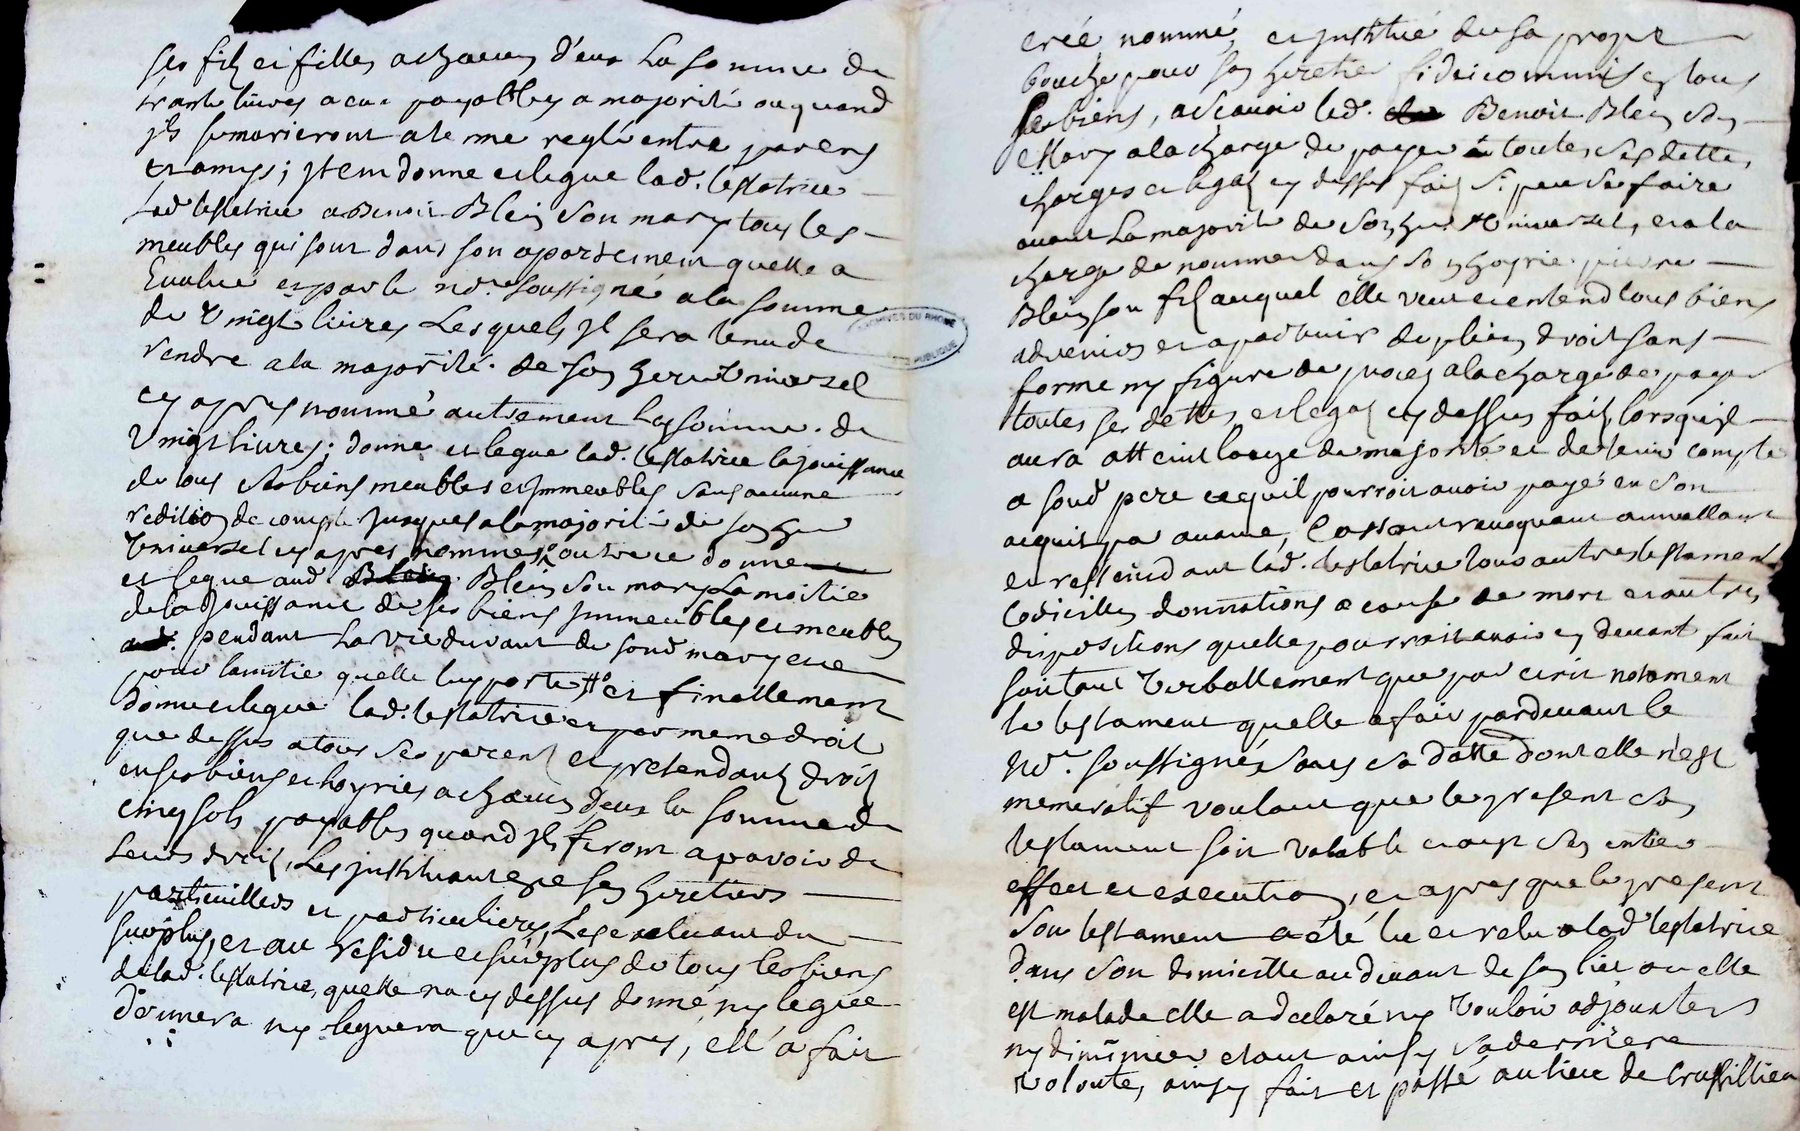 ses filz et filles a chacun d'eux la somme de
trante livres a eux payables a majorité ou quand
jls se marieront a terme reglé entre parens
et amys ; jtem donne et legue lad. testatrice
lad testatrice a Benoit Blein son mary tous les
meubles qui sont dans son apartement quelle a
Evalué et par le nore. soussigné a la somme
de vingt livres Lesquels jl sera tenu de
rendre a la majorité de son herer Vniversel
cy apres nommé autrement la somme de
vingt livres ; donne et legue lad. testatrice la jouissance
de tous ses biens meubles et jmmeubles sans aucune
redition de compte jusques a la majorité de son her
Vniversel cy apres nommé ; outre ce donne
et legue aud Blein son mary La moitié
de la Jouissance de ses biens jmmeubles et meubles
pendant La vie durant de sond mary et ce
pour lamitie quelle luy porte et finallement
donne et legue lad. testatrice et par meme droit
que dessus a tous ses parents et pretendants droits
en ses biens et hoyries a chacun deux la somme de
cinq sols payables quand jls feront aparoir de
leurs droits, Les jnstituant ses heretiers
particulliers et particulieres, Les excluant du
surplus, et au residu et surplus de tous les biens
de lad. testatrice, quelle na cy dessus donné, ny legué
donnera ny leguera que cy apres, ell' a fait
creé nommé, et jnstitué de sa propre
bouche pour son heretier fideicommis en tous
ses biens, a scavoir led. Benoit Blein son
Mary a la charge de payer toutes ses dettes,
charges et legatz cy dessus faitz si peu se faire
avant La majorité de son her Vniversel, et a la
charge de nommer dans son hoyrie pierre
Blein son filz auquel elle veut et entend tous biens
advenir et apartenir de plein droit sans
forme ny figure de proces a la charge de payer
toutes ses dettes, et legatz cy dessus faitz lorsquil
aura atteint laage de majorité et de tenir compte
a sond pere ce quil pourroit avoir payé en son
acquit par avance, Cassant revoquant annullant
et resseindant lad. testatrice tous autres testament
Codicilles donnations a cause de mort et autres
dispositions quelle pourroit avoir cy devant fait
soit tant verballement que par ecrit notament
le testament quelle a fait pardevant le
Nore. soussigné, sous sa datte dont elle n'est
memoratif voulant que le present son
testament soit valable et aye son entier
effect et execution, et apres que le present
son testament a été lu et relu a lad testatrice
dans son domicille au devant de son lict ou elle
est malade elle a declaré ny vouloir adjouster
ny diminuer etant ainsy sa derniere
volonte, ainsy fait et passé au lieu de Crussillieu
ARCHIVES DU RHONE
PUBLIQUE